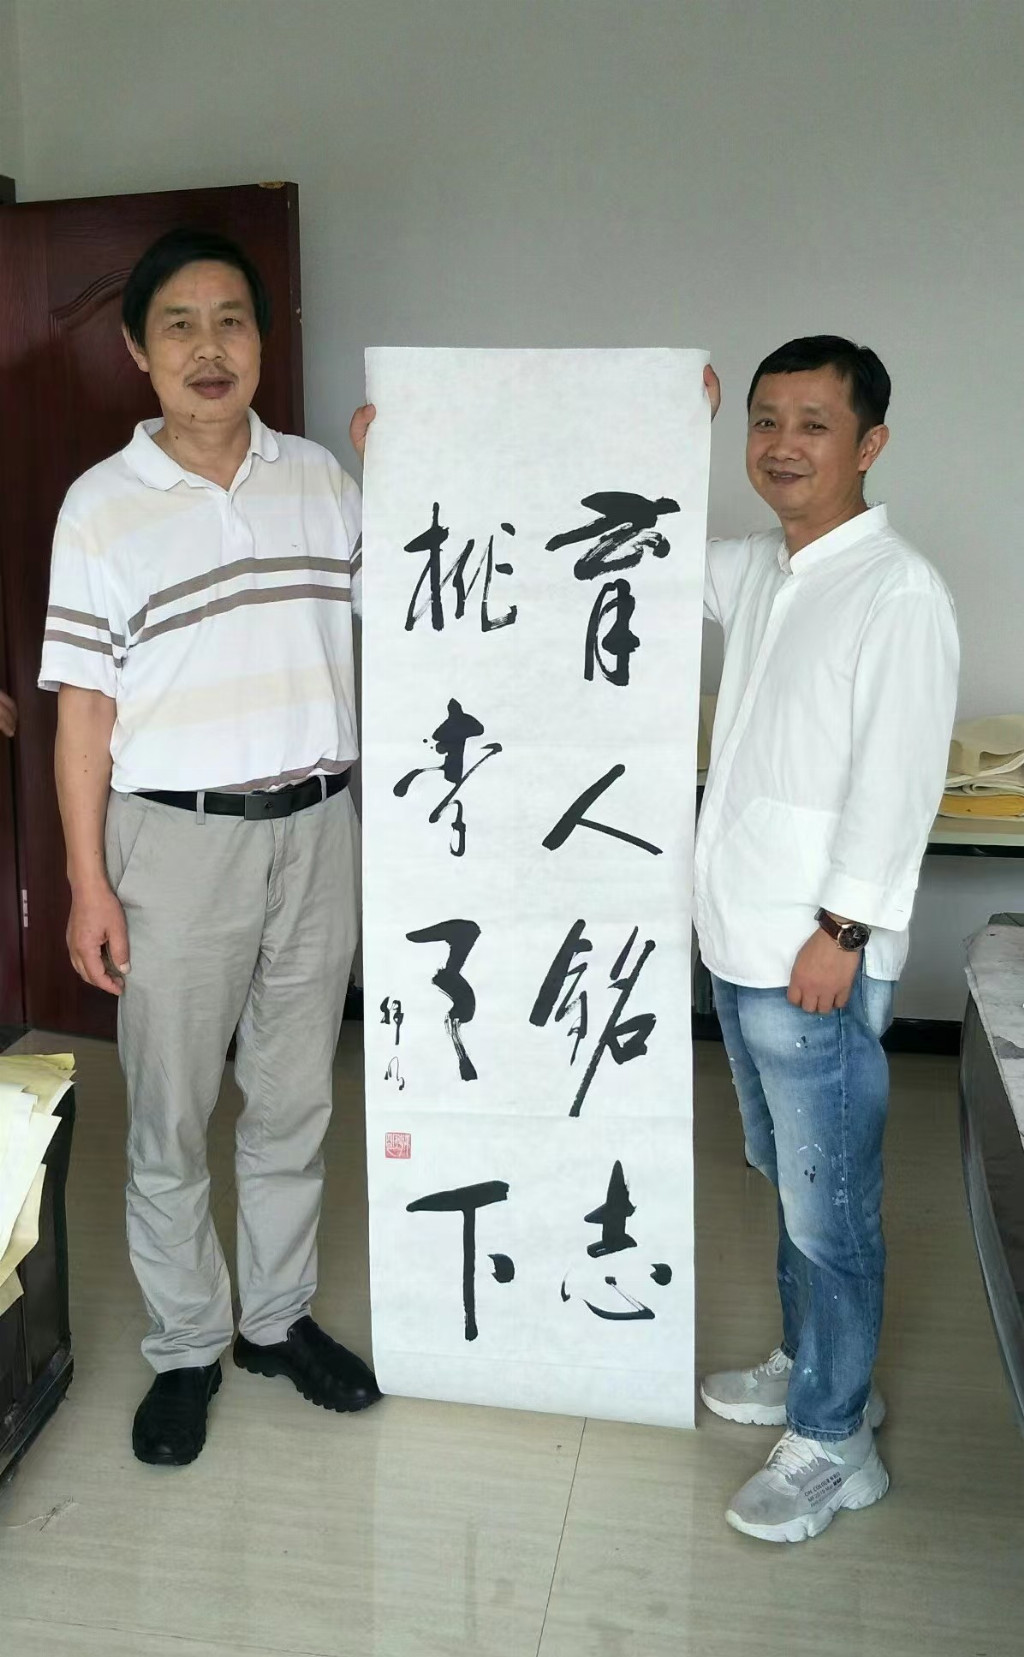 育人铭志
桃李天下